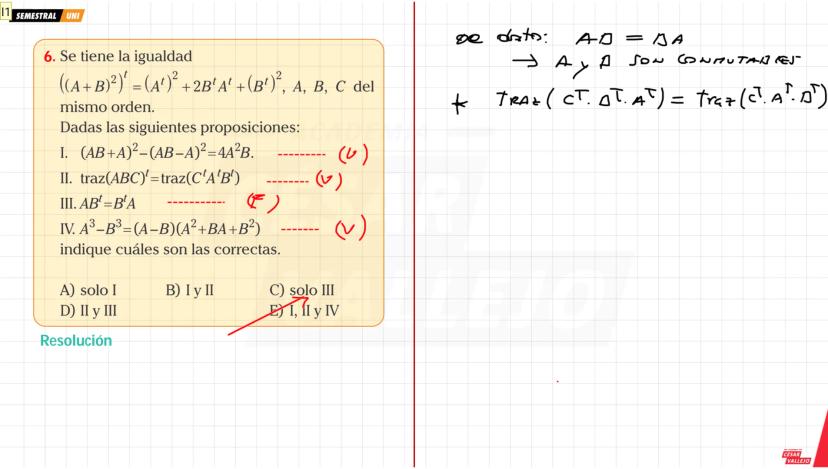 I1
SEMESTRAL UNI
6. Se tiene la igualdad
((A+B)²)ᵗ=(Aᵗ)²+2BᵗAᵗ+(Bᵗ)², A, B, C del
mismo orden.
Dadas las siguientes proposiciones:
I. (AB+A)²−(AB−A)²=4A²B. --------- (V)
II. traz(ABC)ᵗ=traz(CᵗAᵗBᵗ) -------- (V)
III. ABᵗ=BᵗA ----------- (F)
IV. A³−B³=(A−B)(A²+BA+B²) ------- (V)
indique cuáles son las correctas.
A) solo I B) I y II C) solo III
D) II y III E) I, II y IV
Resolución
De dato: AB = BA
→ A y B SON CONMUTABLES
* TRAZ(Cᵀ.Bᵀ.Aᵀ) = Traz(Cᵀ.Aᵀ.Bᵀ)
CÉSAR
VALLEJO